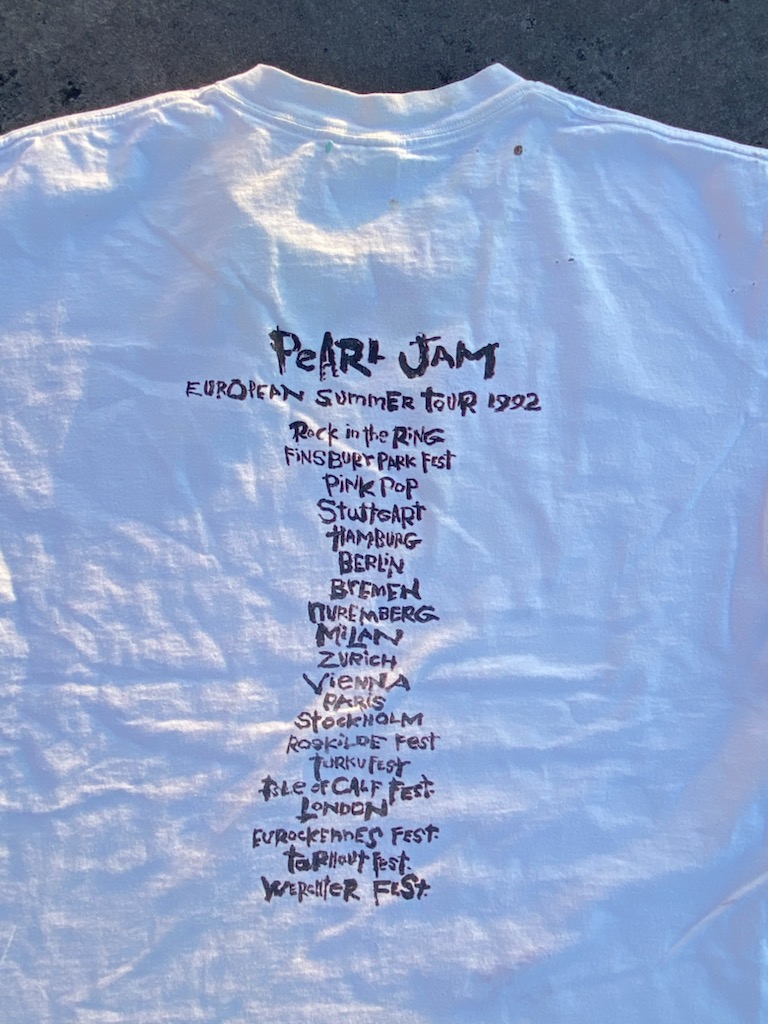 PeARL JAM
EUROPEAN SummER TOUR 1992
Rock in the RiNG
FiNSBURY PARK Fest
PiNK POP
StuttGARt
HAMBURG
BERLiN
BrEMEN
NUREMBERG
MiLAN
ZURiCH
VieNNA
PARiS
StOCKHOLM
ROSKiLDE Fest
TURKU FEST
ISLe of CALF FEST.
LONDON
EUROCKEnnES FEST.
TORHOUT Fest.
WERCHTER FESt.